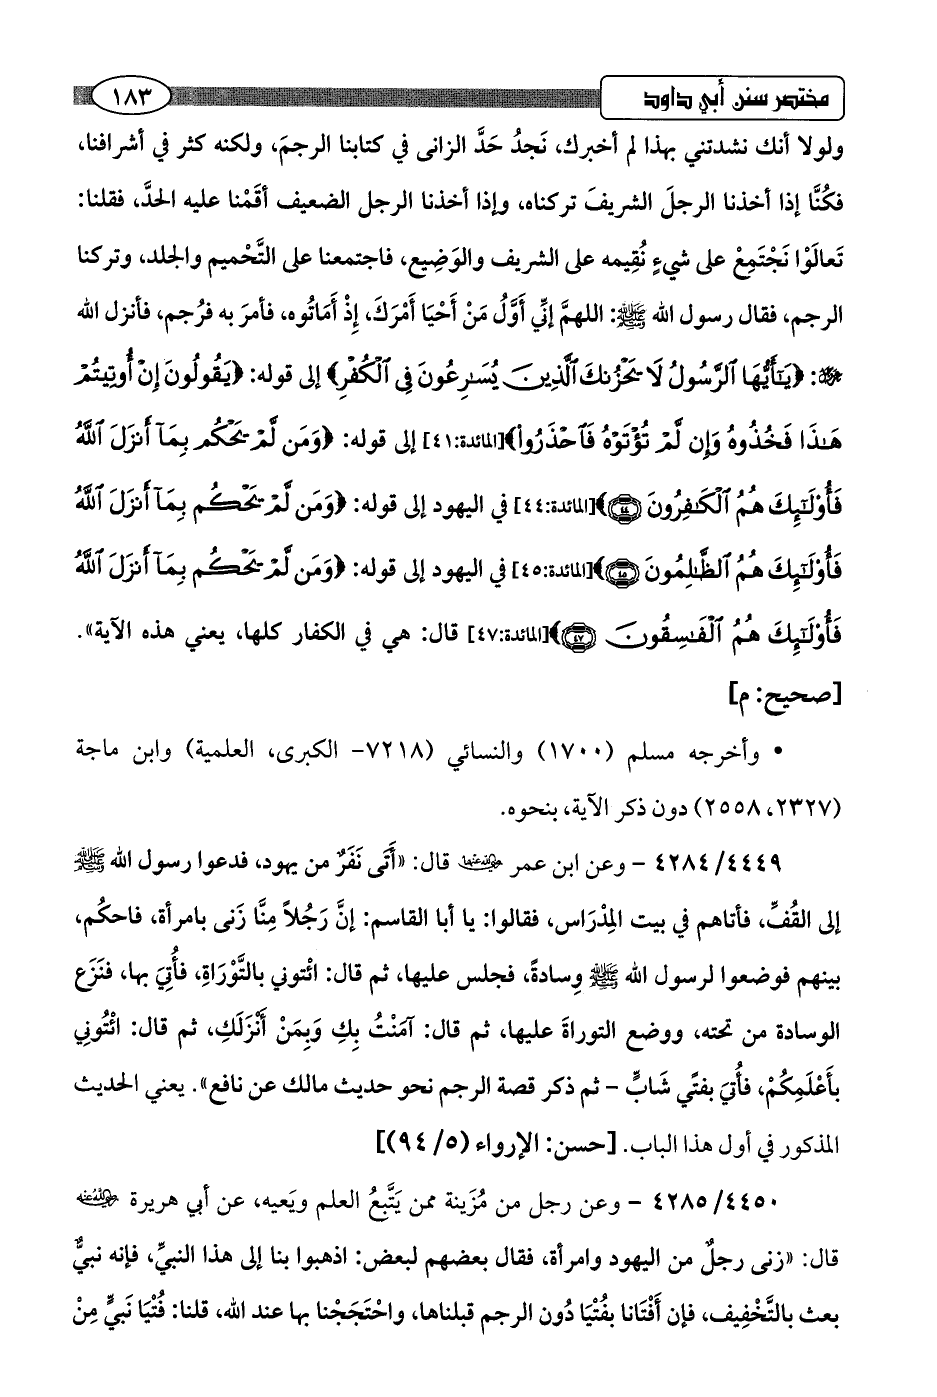 مختصر سنن أبي داود ١٨٣
ولولا أنك نشدتني بهذا لم أخبرك، نَجدُ حَدَّ الزانى في كتابنا الرجمَ، ولكنه كثر في أشرافنا،
فكُنَّا إذا أخذنا الرجلَ الشريفَ تركناه، وإذا أخذنا الرجل الضعيف أقَمْنا عليه الحدَّ، فقلنا:
تَعالَوْا نَجْتَمِعْ على شيءٍ نُقِيمه على الشريف والوَضِيع، فاجتمعنا على التَّحْميم والجلد، وتركنا
الرجم، فقال رسول الله ﷺ: اللهمَّ إنِّي أوَّلُ مَنْ أَحْيَا أمْرَكَ، إذْ أمَاتُوه، فأمرَ به فرُجم، فأنزل الله
ﷻ: ﴿يَـٰٓأَيُّهَا ٱلرَّسُولُ لَا يَحْزُنكَ ٱلَّذِينَ يُسَـٰرِعُونَ فِى ٱلْكُفْرِ﴾ إلى قوله: ﴿يَقُولُونَ إِنْ أُوتِيتُمْ
هَـٰذَا فَخُذُوهُ وَإِن لَّمْ تُؤْتَوْهُ فَٱحْذَرُوا۟﴾[المائدة:٤١] إلى قوله: ﴿وَمَن لَّمْ يَحْكُم بِمَآ أَنزَلَ ٱللَّهُ
فَأُو۟لَـٰٓئِكَ هُمُ ٱلْكَـٰفِرُونَ ٤٤﴾[المائدة:٤٤] في اليهود إلى قوله: ﴿وَمَن لَّمْ يَحْكُم بِمَآ أَنزَلَ ٱللَّهُ
فَأُو۟لَـٰٓئِكَ هُمُ ٱلظَّـٰلِمُونَ ٤٥﴾[المائدة:٤٥] في اليهود إلى قوله: ﴿وَمَن لَّمْ يَحْكُم بِمَآ أَنزَلَ ٱللَّهُ
فَأُو۟لَـٰٓئِكَ هُمُ ٱلْفَـٰسِقُونَ ٤٧﴾[المائدة:٤٧] قال: هي في الكفار كلها، يعني هذه الآية».
[صحيح: م]
• وأخرجه مسلم (١٧٠٠) والنسائي (٧٢١٨- الكبرى، العلمية) وابن ماجة
(٢٣٢٧، ٢٥٥٨) دون ذكر الآية، بنحوه.
٤٢٨٤/٤٤٤٩ - وعن ابن عمر رضي الله عنهما قال: «أَتَى نَفَرٌ من يهود، فدعوا رسول الله ﷺ
إلى القُفِّ، فأتاهم في بيت المِدْرَاس، فقالوا: يا أبا القاسم: إنَّ رَجُلاً مِنَّا زَنى بامرأة، فاحكُم،
بينهم فوضعوا لرسول الله ﷺ وِسادةً، فجلس عليها، ثم قال: ائْتوني بالتَّوْرَاةِ، فأُتِيَ بها، فنَزَع
الوسادة من تحته، ووضع التوراةَ عليها، ثم قال: آمَنْتُ بِكِ وَبِمَنْ أَنْزَلَكِ، ثم قال: ائْتُونِي
بأعْلَمِكُمْ، فأُتيَ بفتًى شَابٍّ - ثم ذكر قصة الرجم نحو حديث مالك عن نافع». يعني الحديث
المذكور في أول هذا الباب. [حسن: الإرواء (٥/ ٩٤)]
٤٢٨٥/٤٤٥٠ - وعن رجل من مُزَينة ممن يَتَّبعُ العلم ويَعيه، عن أبي هريرة رضي الله عنه
قال: «زنى رجلٌ من اليهود وامرأة، فقال بعضهم لبعض: اذهبوا بنا إلى هذا النبيِّ، فإنه نبيٌّ
بعث بالتَّخْفِيف، فإن أَفْتَانا بفُتْيَا دُون الرجم قبلناها، واحْتَججْنا بها عند الله، قلنا: فُتْيَا نَبيٍّ مِنْ